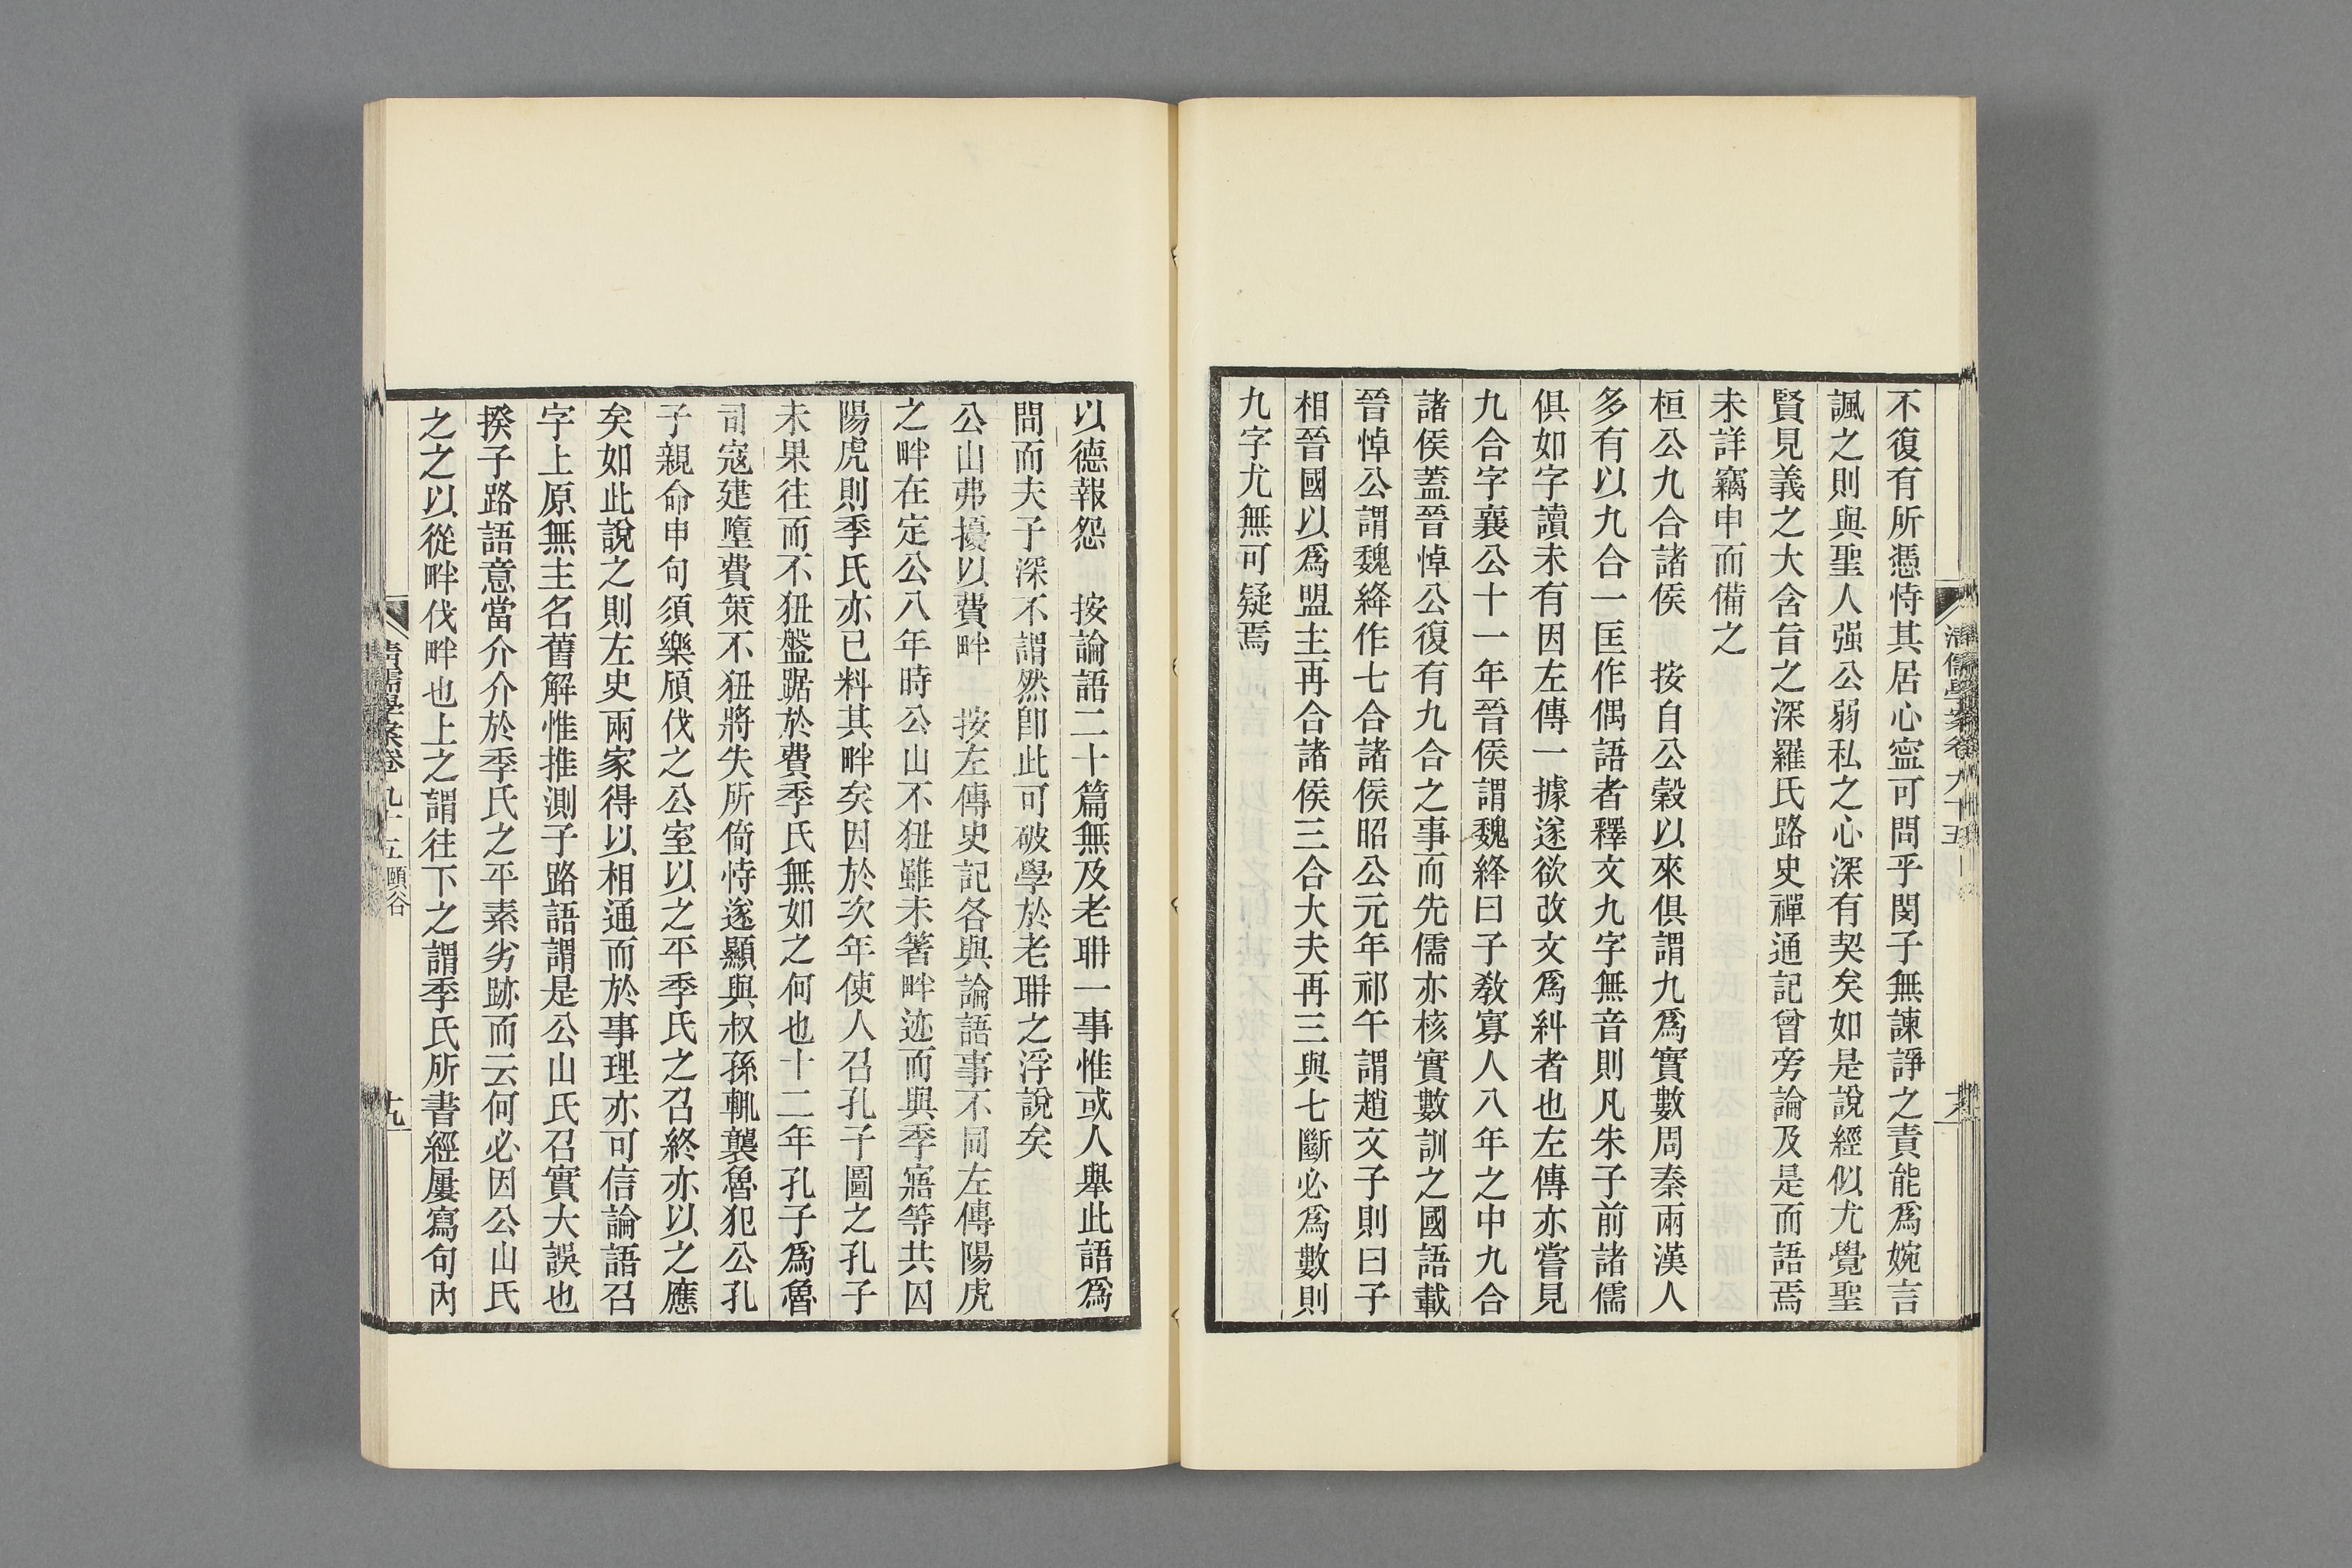 不復有所憑恃其居心寧可問乎閔子無諫諍之責能爲婉言
諷之則與聖人强公弱私之心深有契矣如是說經似尤覺聖
賢見義之大含旨之深羅氏路史禪通記曾旁論及是而語焉
未詳竊申而備之
桓公九合諸侯　按自公穀以來俱謂九爲實數周秦兩漢人
多有以九合一匡作偶語者釋文九字無音則凡朱子前諸儒
俱如字讀未有因左傳一據遂欲改文爲糾者也左傳亦嘗見
九合字襄公十一年晉侯謂魏絳曰子教寡人八年之中九合
諸侯蓋晉悼公復有九合之事而先儒亦核實數訓之國語載
晉悼公謂魏絳作七合諸侯昭公元年祁午謂趙文子則曰子
相晉國以爲盟主再合諸侯三合大夫再三與七斷必爲數則
九字尤無可疑焉
清儒學案卷九十五
以德報怨　按論語二十篇無及老聃一事惟或人舉此語爲
問而夫子深不謂然卽此可破學於老聃之浮說矣
公山弗擾以費畔　按左傳史記各與論語事不同左傳陽虎
之畔在定公八年時公山不狃雖未著畔迹而與季寤等共囚
陽虎則季氏亦已料其畔矣因於次年使人召孔子圖之孔子
未果往而不狃盤踞於費季氏無如之何也十二年孔子爲魯
司寇建墮費策不狃將失所倚恃遂顯與叔孫輒襲魯犯公孔
子親命申句須樂頎伐之公室以之平季氏之召終亦以之應
矣如此說之則左史兩家得以相通而於事理亦可信論語召
字上原無主名舊解惟推測子路語謂是公山氏召實大誤也
揆子路語意當介介於季氏之平素劣跡而云何必因公山氏
之之以從畔伐畔也上之謂往下之謂季氏所書經屢寫句內
清儒學案卷九十五 頤谷
十九